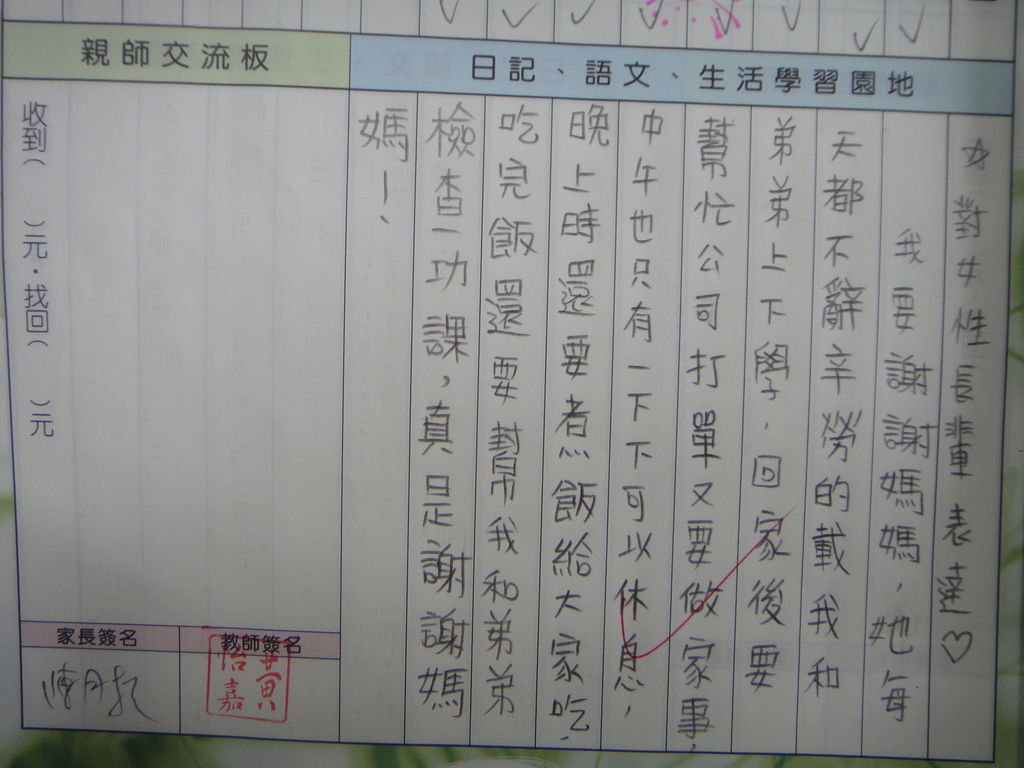 親師交流板
日記、語文、生活學習園地
☆對女性長輩表達♡
我要謝謝媽媽，她每
天都不辭辛勞的載我和
弟弟上下學，回家後要
幫忙公司打單又要做家事，
中午也只有一下下可以休息，
晚上時還要煮飯給大家吃，
吃完飯還要幫我和弟弟
檢查功課，真是謝謝媽
媽！
收到（　　）元．找回（　　）元
家長簽名
教師簽名
黃怡嘉